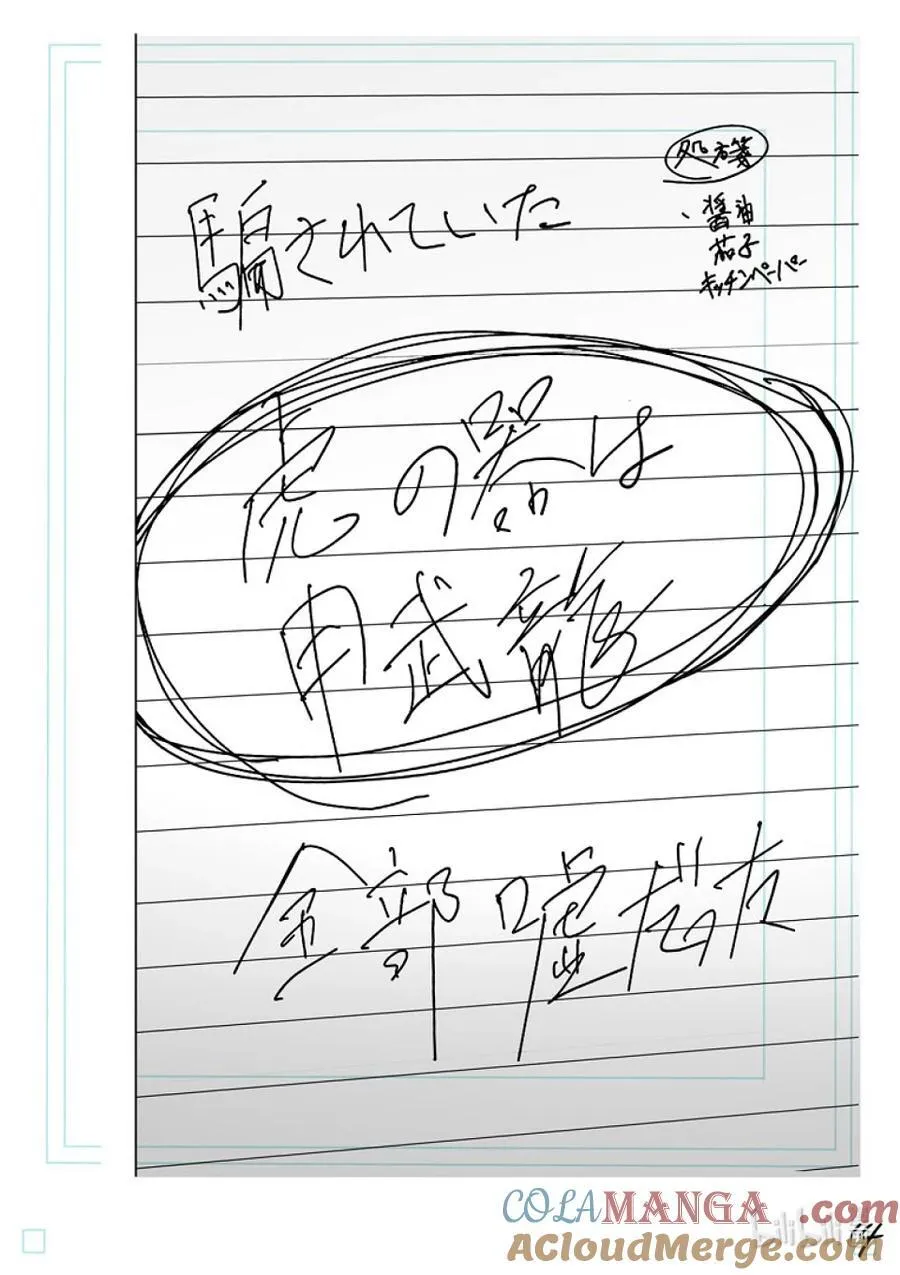 処方箋
、醤油
茄子
キッチンペーパー
騙されていた
虎の器は
申武龍
全部嘘だった
COLAMANGA.com
AcloudMerge.com
bilibili